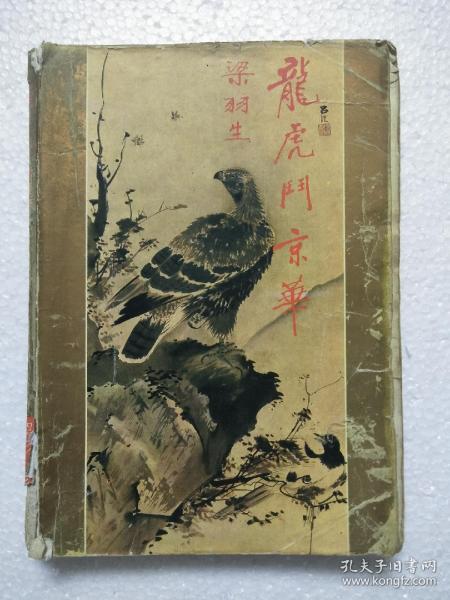 龍虎鬥京華
梁羽生
孔夫子旧书网
www.kongfz.com